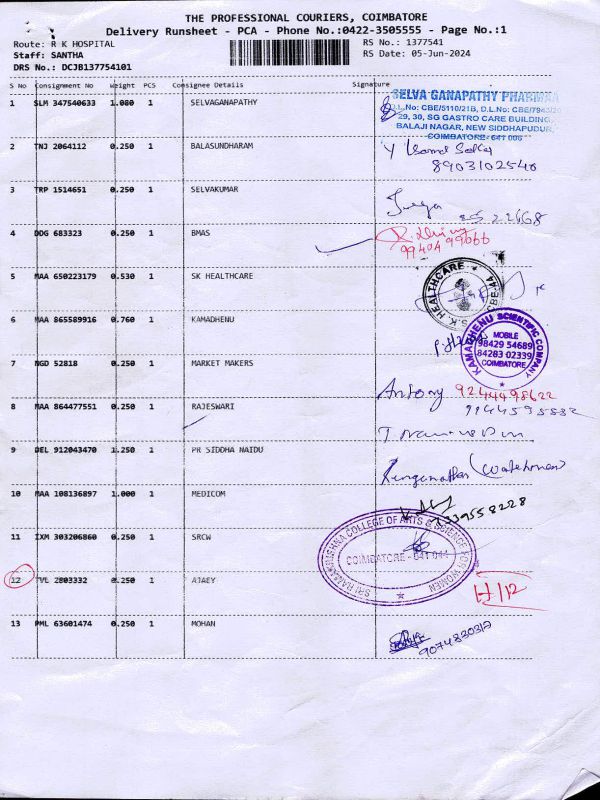 THE PROFESSIONAL COURIERS, COIMBATORE
Delivery Runsheet - PCA - Phone No.:0422-3505555 - Page No.:1
Route: R K HOSPITAL
RS No.: 1377541
Staff: SANTHA
RS Date: 05-Jun-2024
DRS No.: DCJB137754101
S No Consignment No Weight PCS Consignee Details Signature
1 SLM 347540633 1.080 1 SELVAGANAPATHY
SELVA GANAPATHY PHARMA
D.L.No: CBE/5110/21B, D.L.No: CBE/7943/20
29, 30, SG GASTRO CARE BUILDING,
BALAJI NAGAR, NEW SIDDHAPUDUR,
COIMBATORE- 641 006
2 TNJ 2064112 0.250 1 BALASUNDHARAM
8903102540
3 TRP 1514651 0.250 1 SELVAKUMAR
4 DDG 683323 0.250 1 BMAS
99404 99666
5 MAA 650223179 0.530 1 SK HEALTHCARE
S.K. HEALTHCARE
6 MAA 865589916 0.760 1 KAMADHENU
KAMADHENU SCIENTIFIC COMPANY
MOBILE
98429 54689
84283 02339
COIMBATORE
7 NGD 52818 0.250 1 MARKET MAKERS
Antony 9244498622
8 MAA 864477551 0.250 1 RAJESWARI
9 DEL 912043470 1.250 1 PR SIDDHA NAIDU
Renganathan (Watchman)
10 MAA 108136897 1.000 1 MEDICOM
7339558228
11 IXM 303206860 0.250 1 SRCW
SRI RAMAKRISHNA COLLEGE OF ARTS & SCIENCE FOR WOMEN
COIMBATORE - 641 044
12 TVL 2803332 0.250 1 AJAEY
H/12
13 PML 63601474 0.250 1 MOHAN
9074830312